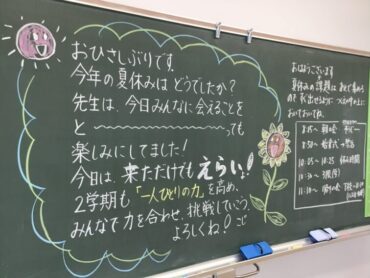 おひさしぶりです。
今年の夏休みは どうでしたか？
先生は、今日みんなに会えることを
と〜〜〜〜〜〜〜〜っても
楽しみにしてました！
今日は、来ただけでも えらい！
2学期も「一人ひとりの力」を高め、
みんなで力を合わせ、挑戦していこう
よろしくね！
おはようございます
夏休みの課題は
おいておいてね。
8:25〜
8:50〜
10:05〜10:25
10:30〜
11:10〜